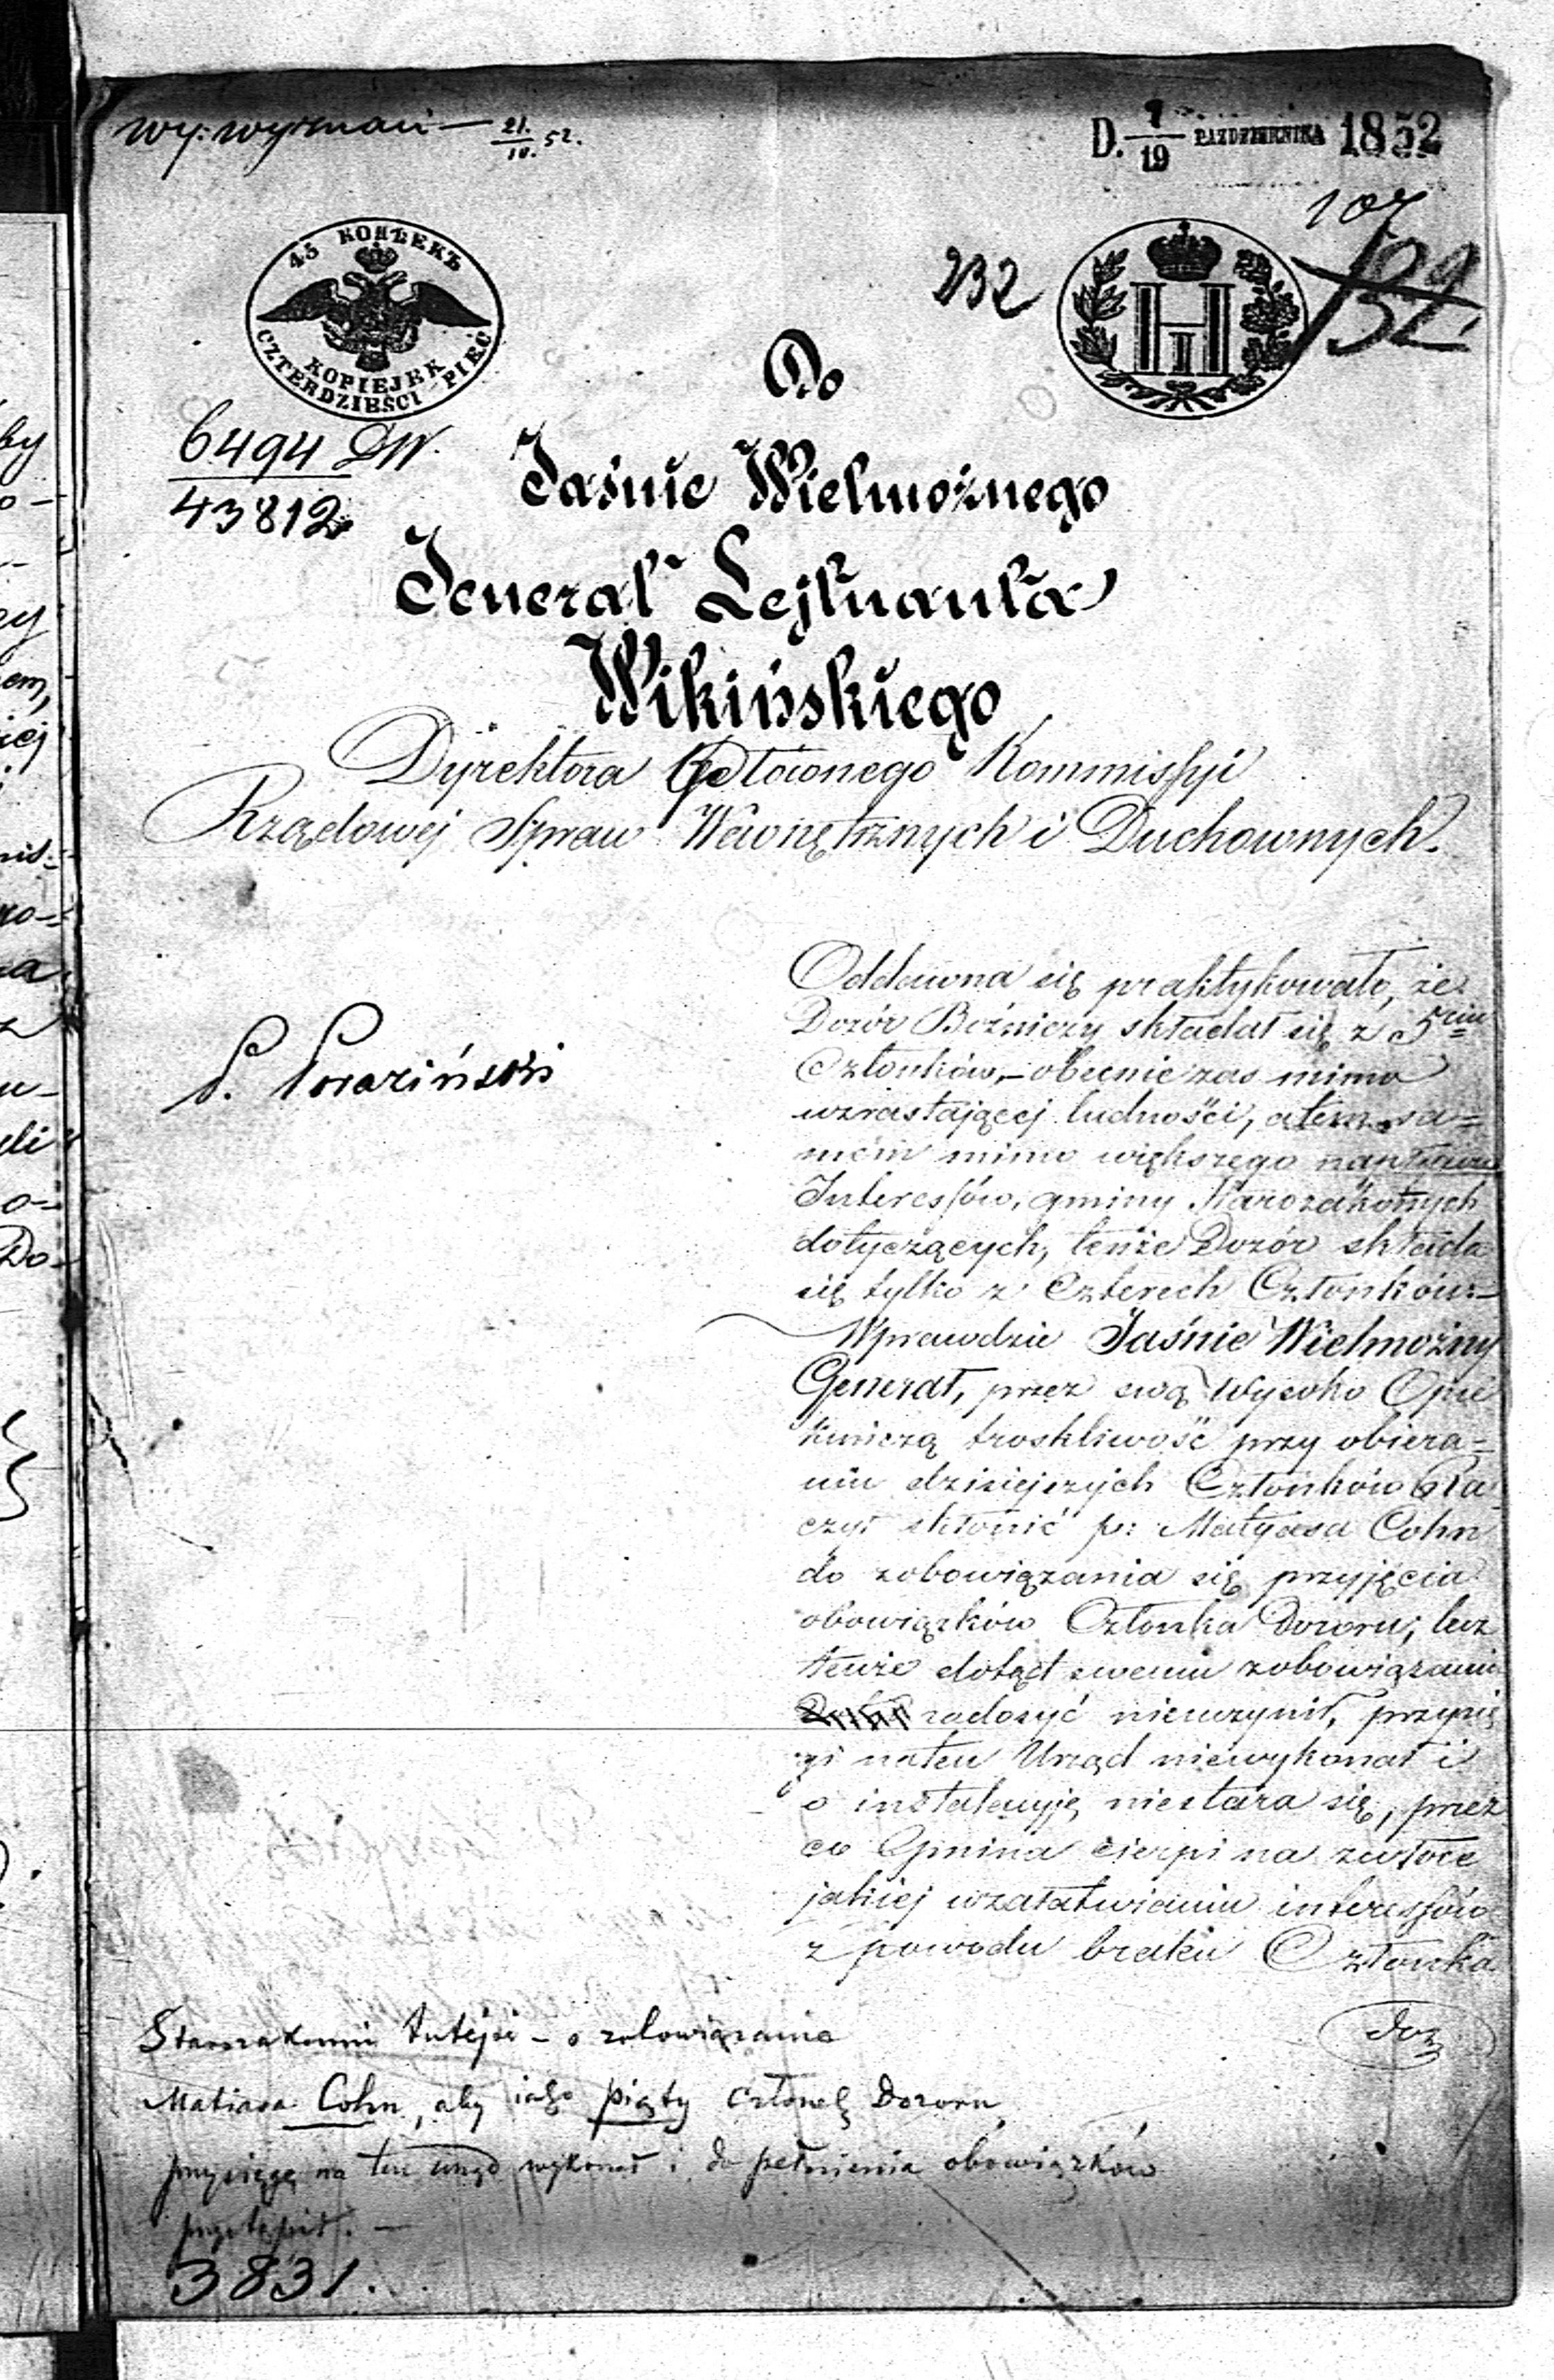 wy: wyznań — 21/10. 52.
D. 7/19 PAZDZIERNIKA 1852
107
132
232
45 КОПѢЕКЪ
KOPIEJEK
CZTERDZIEŚCI PIEĆ
H I
Do
6494 DW.
43812
Jaśnie Wielmożnego
Jenerał Lejtnanta
Wikińskiego
Dyrektora Głównego Kommissyi
Rządowej Spraw Wewnętrznych i Duchownych.
Oddawna się praktykowało, że
Dozór Bóżniczy składał się z 5ciu
Członków,– obecnie zas mimo
wzrastającej ludności, a tem sa=
mem mimo większego napływu
Interessów, gminy Starozakonnych
dotyczących, tenże Dozór składa
się tylko z Czterech Członków.–
Wprawdzie Jaśnie Wielmożny
Generał, przez swą Wysoko Opie
kuńczą troskliwość przy obiera=
niu dzisiejszych Członków Ra
czył skłonić p: Matyasa Cohn
do zobowiązania się przyjęcia
obowiązków Członka Dozoru; lecz
tenże dotąd swemu zobowiązaniu
zadosyć nieuczynił, przysię
gi na ten Urząd niewykonał i
o instalacyję niestara się, przez
co Gmina cierpi na zwłoce
jakiej w załatwianiu interessów
z powodu braku Członka
doz
S. Poraziński
Starozakonni tutejsi – o zobowiązanie
Matiasa Cohn, aby iako piąty członek Dozoru
przysięgę na ten urząd wykonał i do pełnienia obowiązków
przystąpił. —
3831.